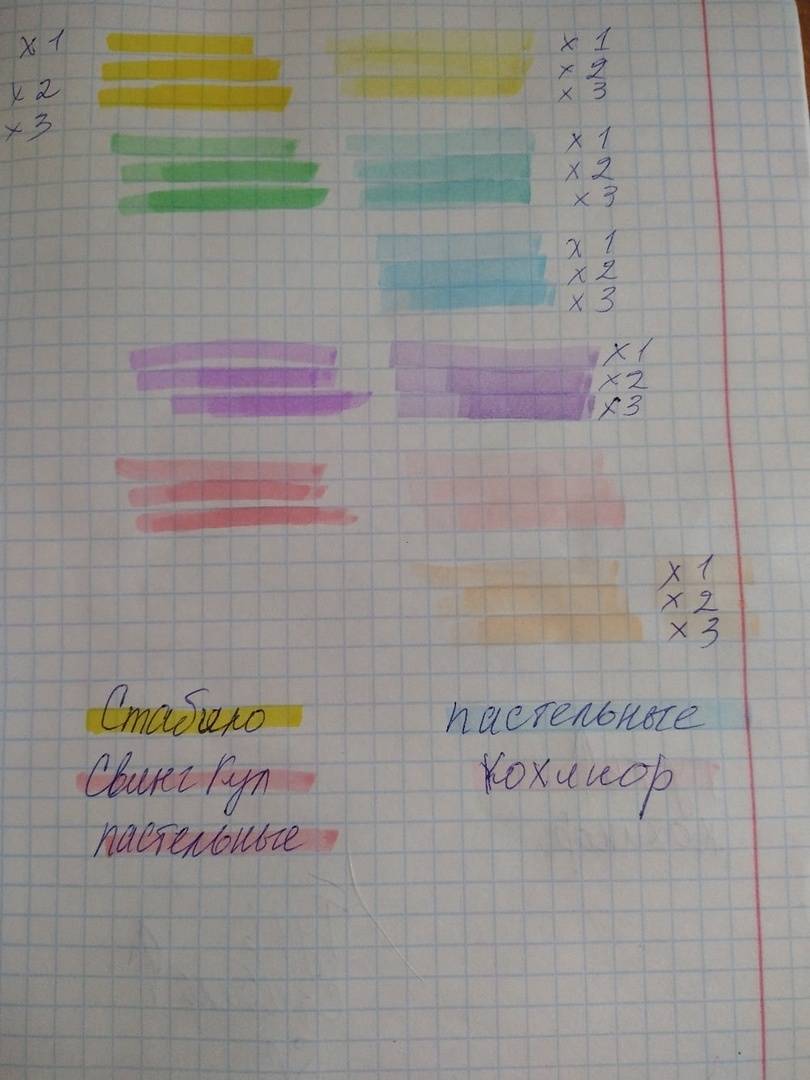 x 1 x 1
x 2 x 2
x 3 x 3
x 1
x 2
x 3
x 1
x 2
x 3
x 1
x 2
x 3
x 1
x 2
x 3
Стабило пастельные
Свинг Кул Кохинор
пастельные